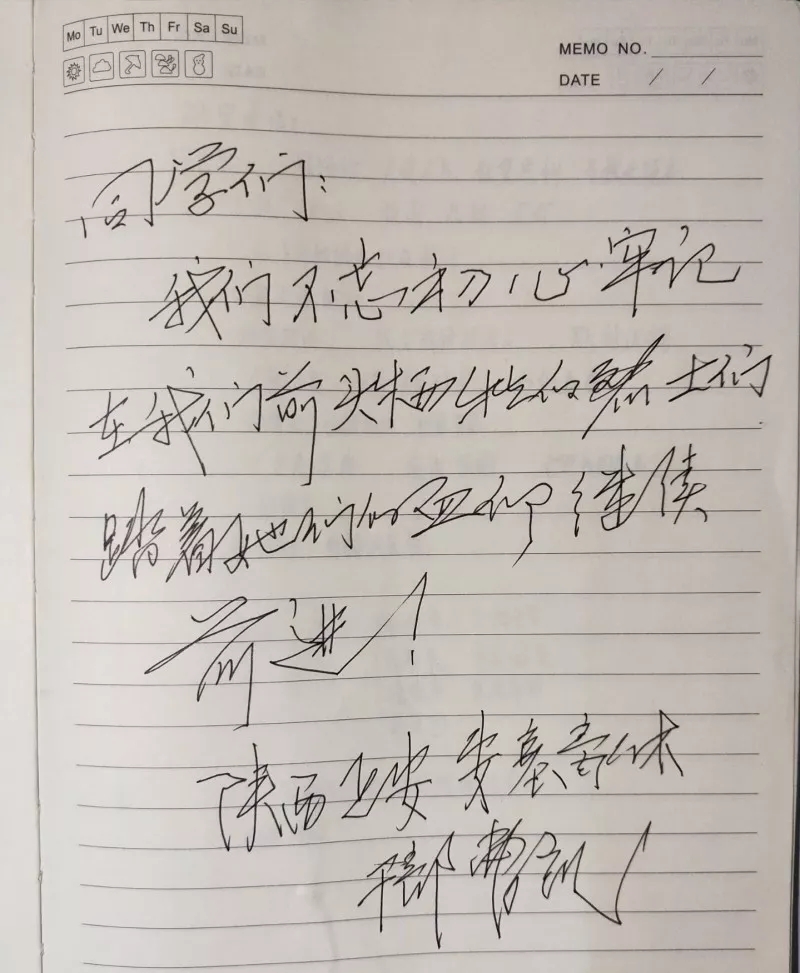 Mo Tu We Th Fr Sa Su
MEMO NO.
DATE / /
同学们:
我们不忘初心牢记
在我们前头牺牲的烈士们
踏着他们的血印继续
前进!
陕西 安